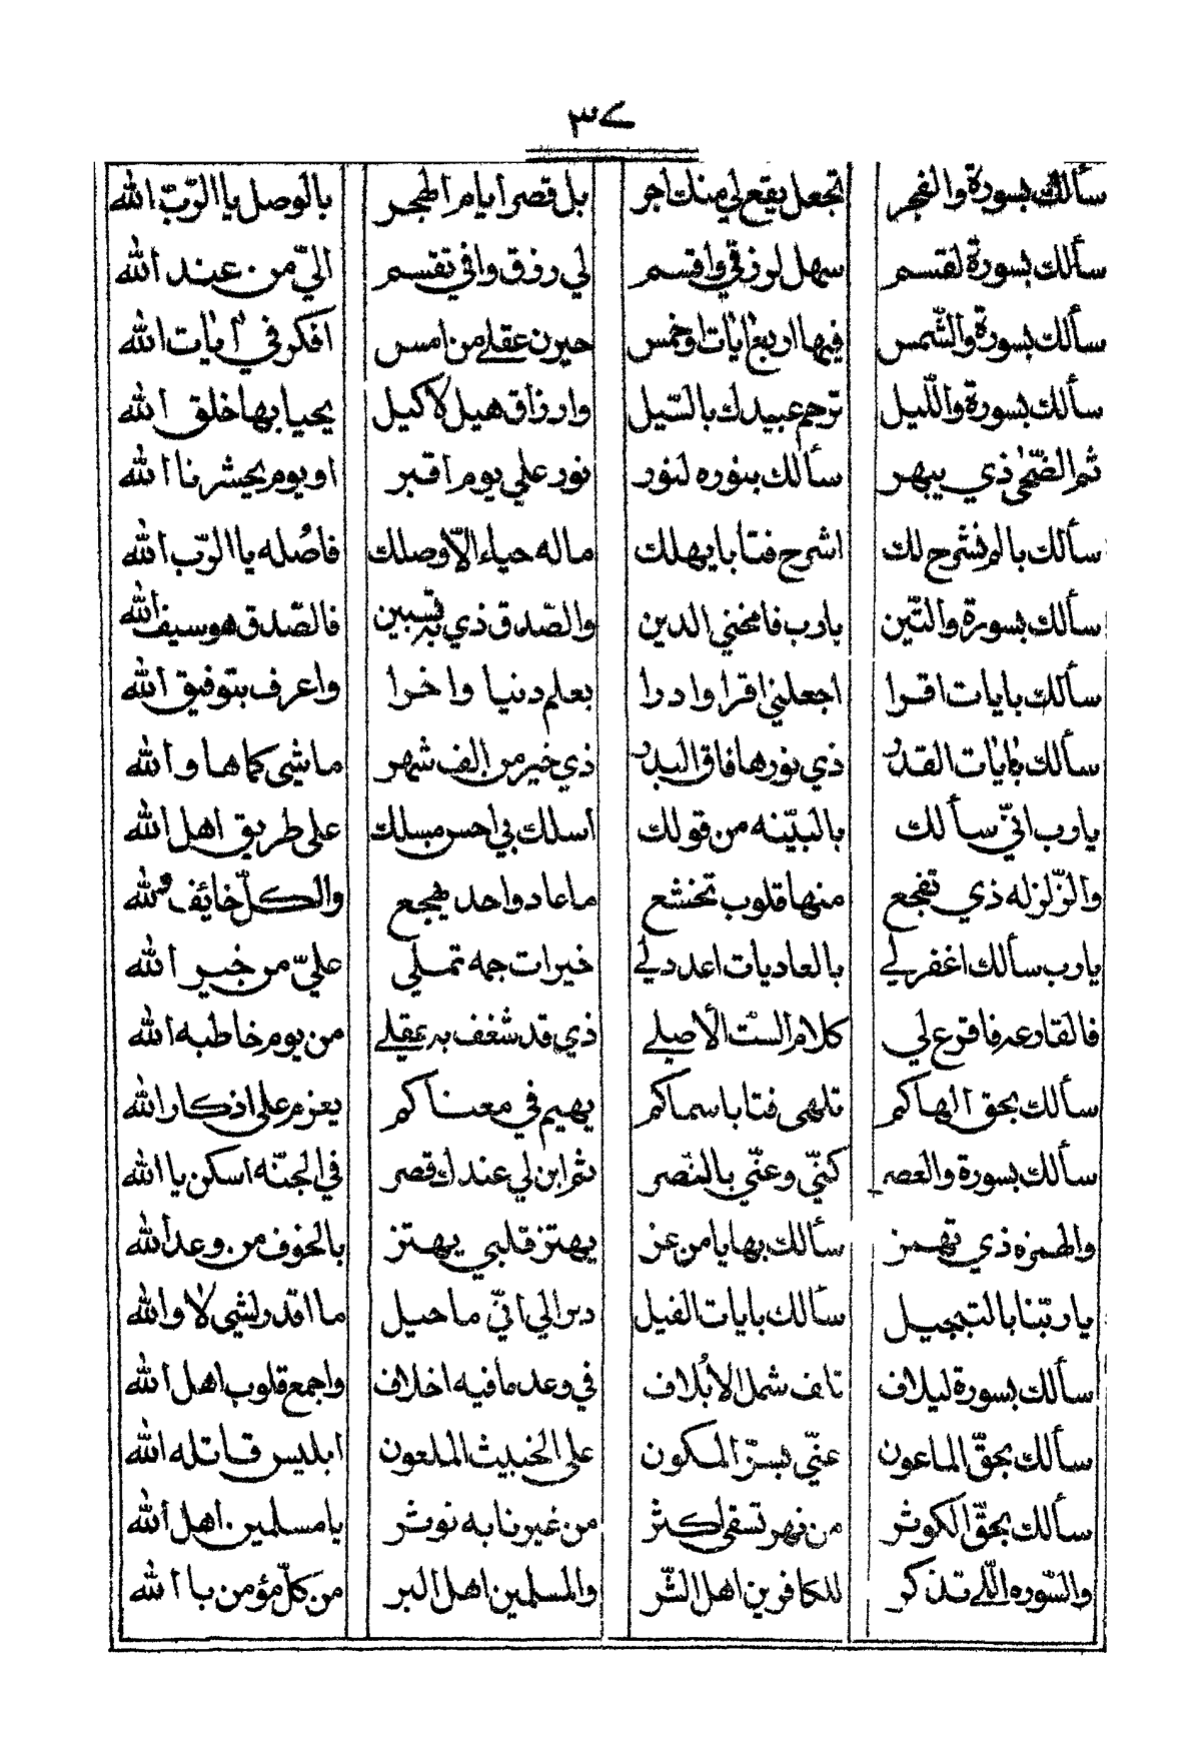 ٣٧
سألك بسورة والفجر تجعل يقع لي منك اجر بل قصر أيام الهجر بالوصل يا الرّبّ الله
سألك بسورة لقسم سهل لرزقي واقسم لي رزق وافي تقسم اليّ من عند الله
سألك بسورة والشّمس فيها اربع ايات اوخمس حيرن عقلي من امس أفكر في أيات الله
سألك بسورة واللّيل ترحم عبيدك بالسّيل وارزاق هيل لا كيل يحيا بها خلق الله
ثم الضّحى ذي يبهر سألك بنوره لنور نور علي يوم أقبر او يوم يحشرنا الله
سألك بالم نشرح لك اشرح فتا بايهلك ماله حياء الّا وصلك فاصُله يا الرّب الله
سألك بسورة والتّين يارب فامنحني الدين والصّدق ذي به تسبين فالصّدق هو سيف الله
سألك بايات اقرا اجعلني اقرا وادرا بعلم دنيا واخرا واعرف بتوفيق الله
سألك بايات القدر ذي نورها فاق البدر ذي خير من الف شهر ماشي كماها والله
يارب انيّ سألك بالبيّنه من قولك اسلك بي احسن مسلك على طريق اهل الله
والزّلزله ذي تفجع منها قلوب تخشع ماعاد واحد يهجع والكلّ خائف لله
يارب سألك اغفر لي بالعاديات اعدد لي خيرات جمه تملي عليّ من خير الله
فالقارعه فاقرع لي كلام الست الأصلي ذي قد شغف به عقلي من يوم خاطبه الله
سألك بحق الهاكم تلهي فتا باسماكم يهيم في معناكم يعزم على اذكار الله
سألك بسورة والعصر كنّي وعنّي بالنّصر ثم ابن لي عندك قصر في الجنّه اسكن يا الله
والهمزه ذي تهمز سألك بها يا من عز يهتز قلبي يهتز بالخوف من وعد الله
يا ربّنا بالتبجيل سألك بايات الفيل دبر الي انّي ما حيل ما اقدر لشي لا والله
سألك بسورة ليلاف تالف شمل الأبلاف في وعد مافيه اخلاف واجمع قلوب اهل الله
سألك بحقّ الماعون عنّي بسرّ المكون على الخبيث الملعون ابليس قاتله الله
سألك بحقّ الكوثر من نهر تسقي اكثر من غيرنا به نوثر يا مسلمين اهل الله
والسّوره اللي تذكر للكافرين اهل الشّر والمسلمين اهل البر من كلّ مؤمن بالله